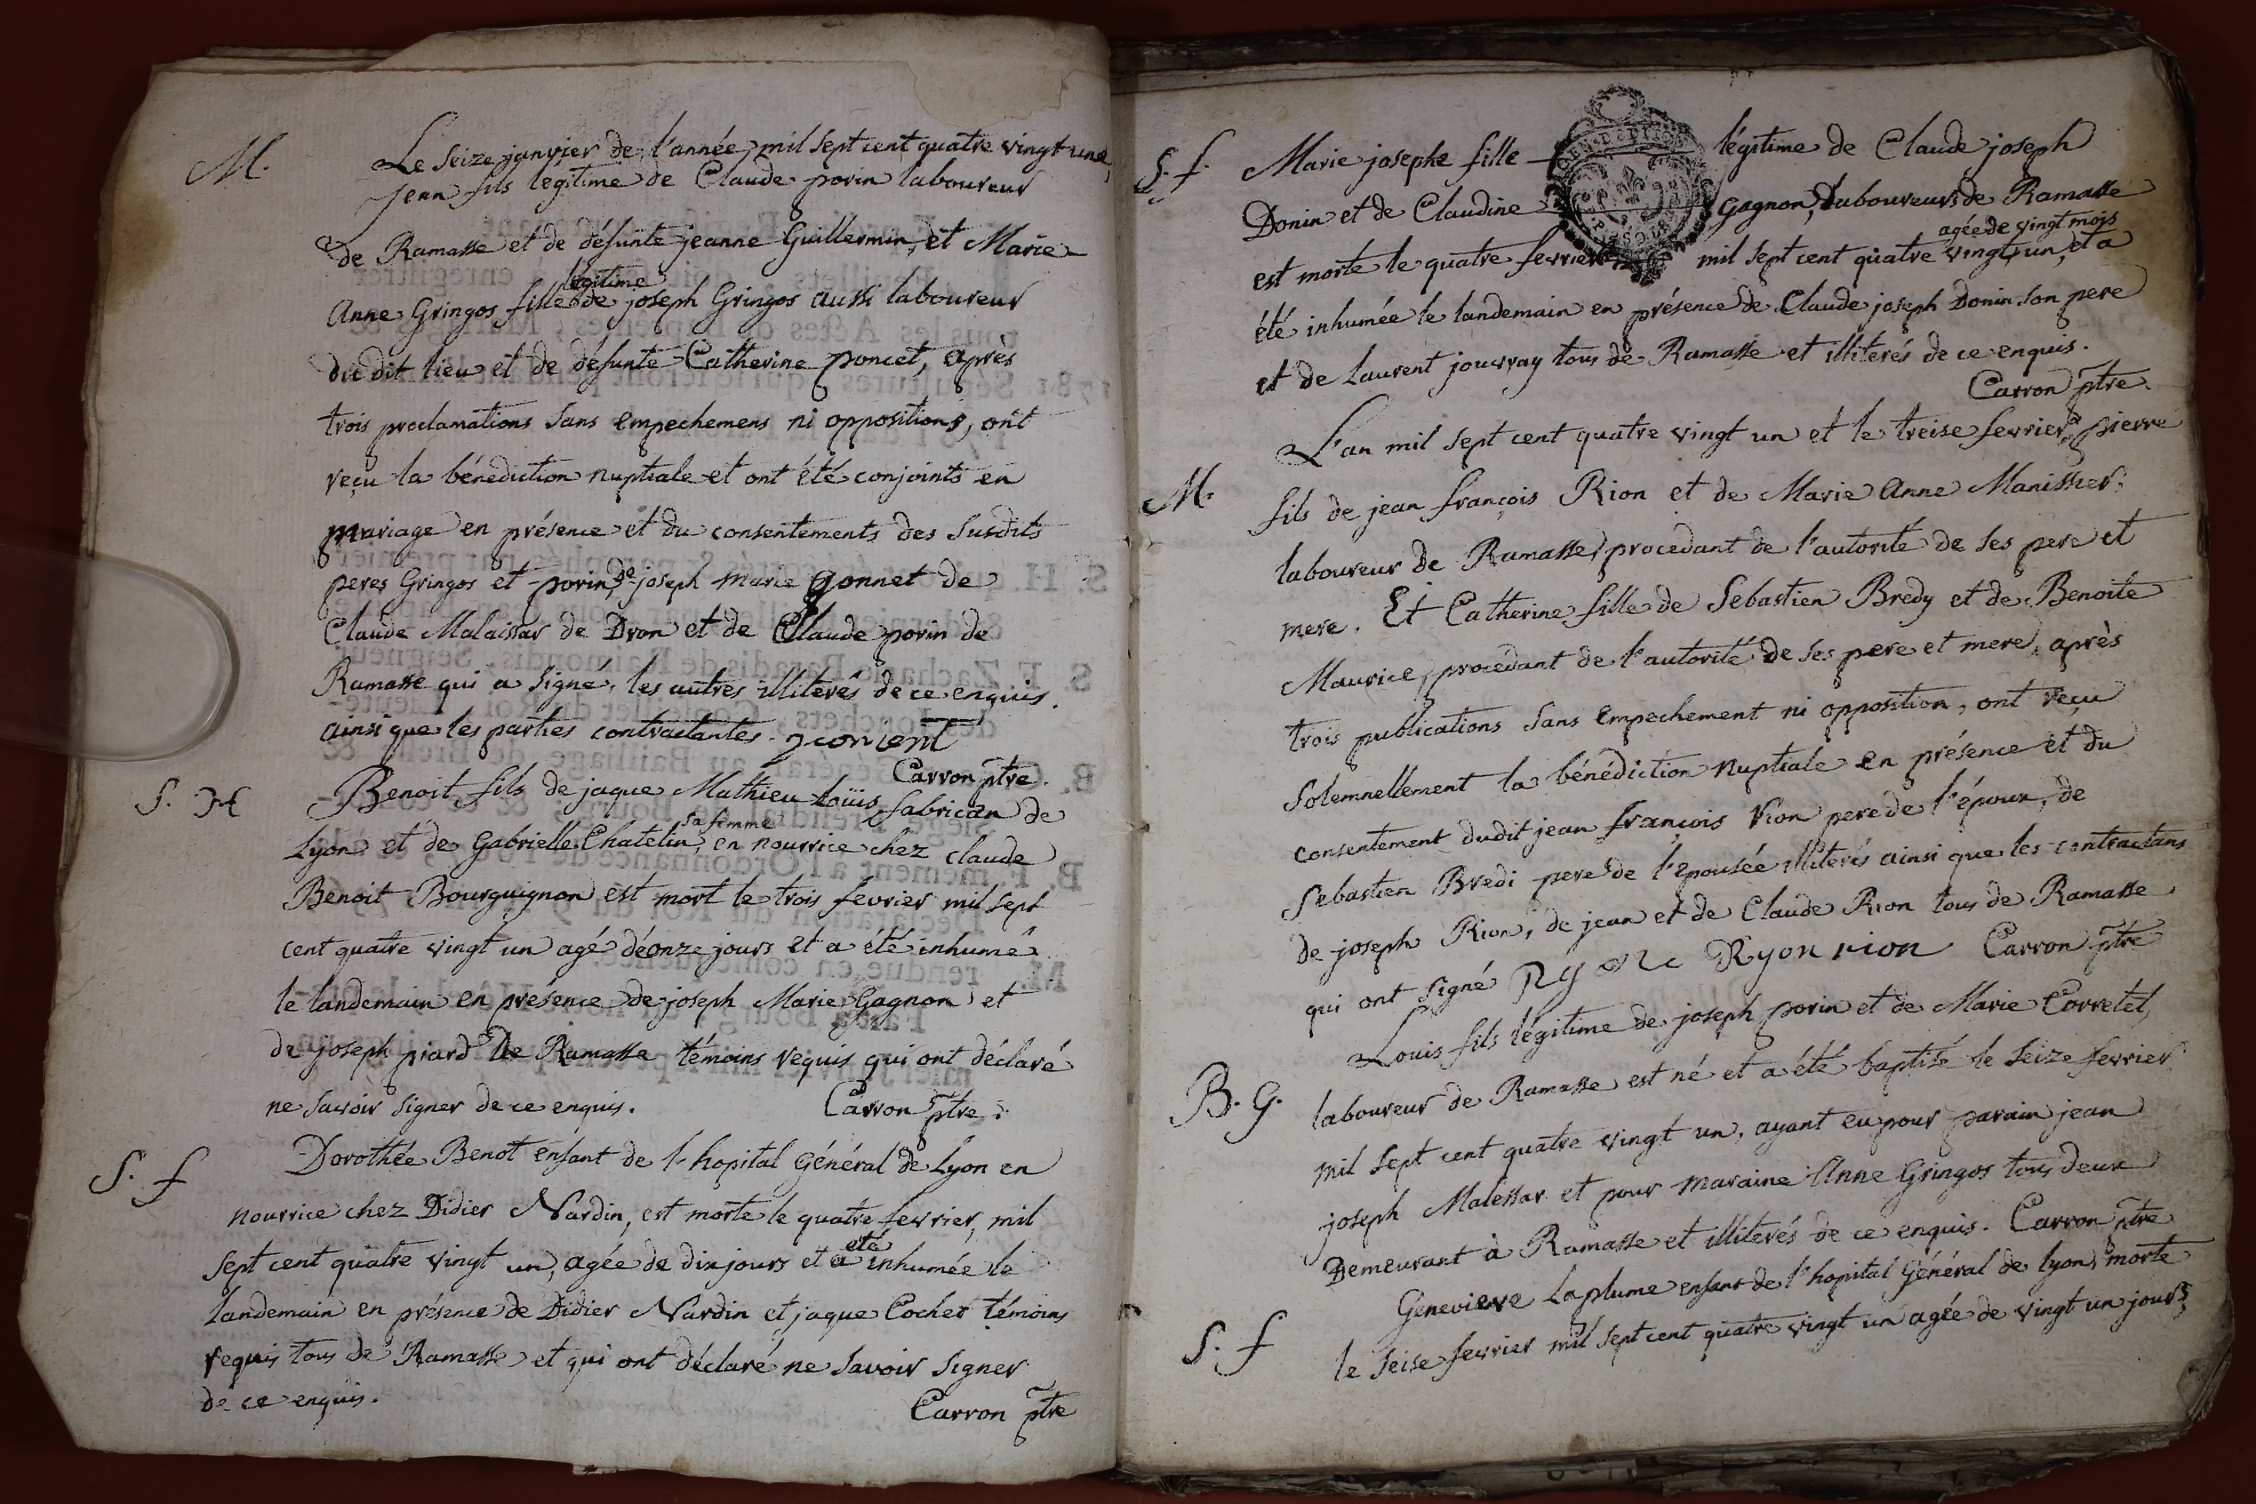 M.
Le seize janvier de l'année mil sept cent quatre vingt une,
jean fils legitime de Claude porin laboureur
de Ramasse et de défunte jeanne Guillermin, et Marie
anne Gringos fille legitime de joseph Gringos aussi laboureur
du dit lieu et de défunte Catherine poncet, après
trois proclamations sans empechemens ni oppositions, ont
reçu la bénediction nuptiale et ont été conjoints en
mariage en présence et du consentements des susdits
peres Gringos et porin, de joseph marie gonnet de
Claude Malaissar de Dron et de Claude porin de
Ramasse qui a signé, les autres illiterés de ce enquis.
ainsi que les parties contractantes.
Carron ptre.
S. H
Benoit fils de jaque Mathieu Loüis fabrican de
Lyon et de Gabrielle Châtelin sa femme, en nourrice chez claude
Benoit Bourguignon est mort le trois fevrier mil sept
cent quatre vingt un agé déonze jours et a été inhumé
le landemain en présence de joseph Marie Gagnon et
de joseph piard de Ramasse témoins requis qui ont déclaré
ne savoir signer de ce enquis. Carron ptre.
S. f
Dorothée Benot enfant de l'hopital général de Lyon en
nourrice chez Didier Nardin, est morte le quatre fevrier, mil
sept cent quatre vingt un, agée de dix jours et a été inhumée le
landemain en présence de Didier Nardin et jaque Cochet témoins
requis tous de Ramasse et qui ont déclaré ne savoir signer
de ce enquis.
Carron ptre
S. f.
Marie josephe fille légitime de Claude joseph
Donin et de Claudine Gagnon, Laboureurs de Ramasse
est morte le quatre fevrier mil sept cent quatre vingt un, agée de vingt mois et a
été inhumée le landemain en présence de Claude joseph Donin son pere
et de Laurent jouvray tous de Ramasse et illiterés de ce enquis.
Carron ptre.
M.
L'an mil sept cent quatre vingt un et le treise fevrier, pierre
fils de jean françois Rion et de Marie Anne Manissier,
laboureur de Ramasse, procedant de l'autorité de ses pere et
mere. Et Catherine fille de Sebastien Bredy et de Benoite
Maurice, procedant de l'autorité de ses pere et mere, après
trois publications sans empechement ni opposition, ont reçu
solemnellement la bénédiction nuptiale en présence et du
consentement dudit jean françois Rion pere de l'époux, de
Sebastien Bredi pere de l'epousée illiterés ainsi que les contractans
de joseph Rion, de jean et de Claude Rion tous de Ramasse
qui ont signé Ryon rion Carron ptre
B. G.
Louis fils légitime de joseph porin et de Marie Corretel,
laboureur de Ramasse est né et a été baptisé le seize fevrier
mil sept cent quatre vingt un, ayant eu pour parain jean
joseph Malessar et pour maraine Anne Gringos tous deux
Demeurant à Ramasse et illiterés de ce enquis. Carron ptre
S. f
Genevieve Laplume enfant de l'hopital Général de lyon, morte
le seise fevrier mil sept cent quatre vingt un agée de vingt un jours,